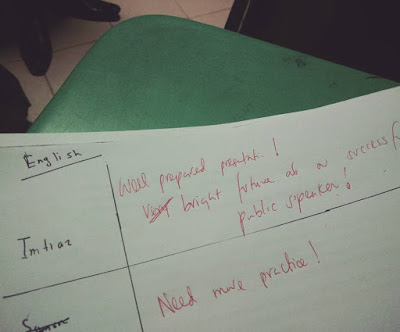 English
Well prepared presentation!
bright future as a successf
public speaker!
Imtiaz
Need more practice!